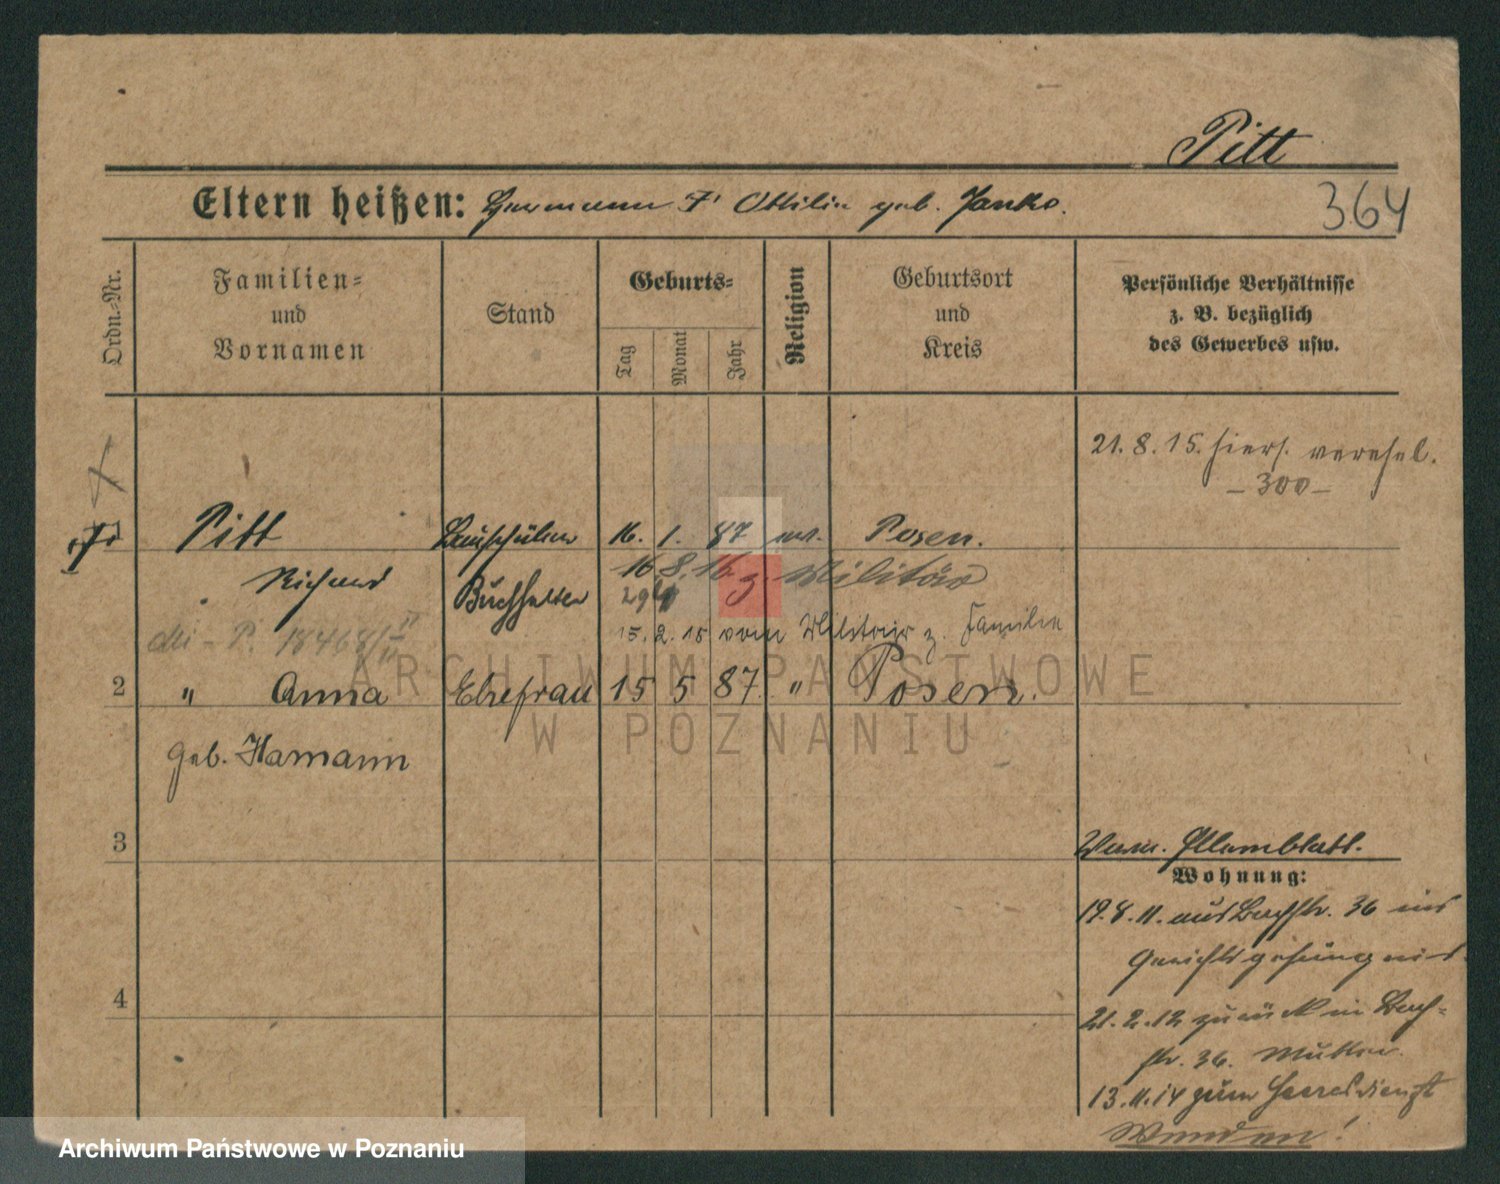 Pitt
Eltern heißen: Hermann † Ottilie geb. Janko.
364
Ordn.-Nr.
Familien-
und
Vornamen
Stand
Geburts-
Tag
Monat
Jahr
Religion
Geburtsort
und
Kreis
Persönliche Verhältnisse
z. B. bezüglich
des Gewerbes usw.
21. 8. 15. hiers. verehel.
- 300 -
Pitt
16. 1. 87 ev. Posen.
Richard
Buchhalter
16.8.16 z. Militär
294
15. 2. 15 vom Militair z. Familie
2 " Anna Ehefrau 15 5 87. " Posen.
geb. Hamann
3
Wohnung:
19.8.11. aus Bachstr. 36 ins
Gerichtsgefängnis.
4
21.2.12 zurück in Bach-
str. 36. Mutter.
13.11.14 zum Heeresdienst
Wenden!
ARCHIWUM PAŃSTWOWE
W POZNANIU
Archiwum Państwowe w Poznaniu